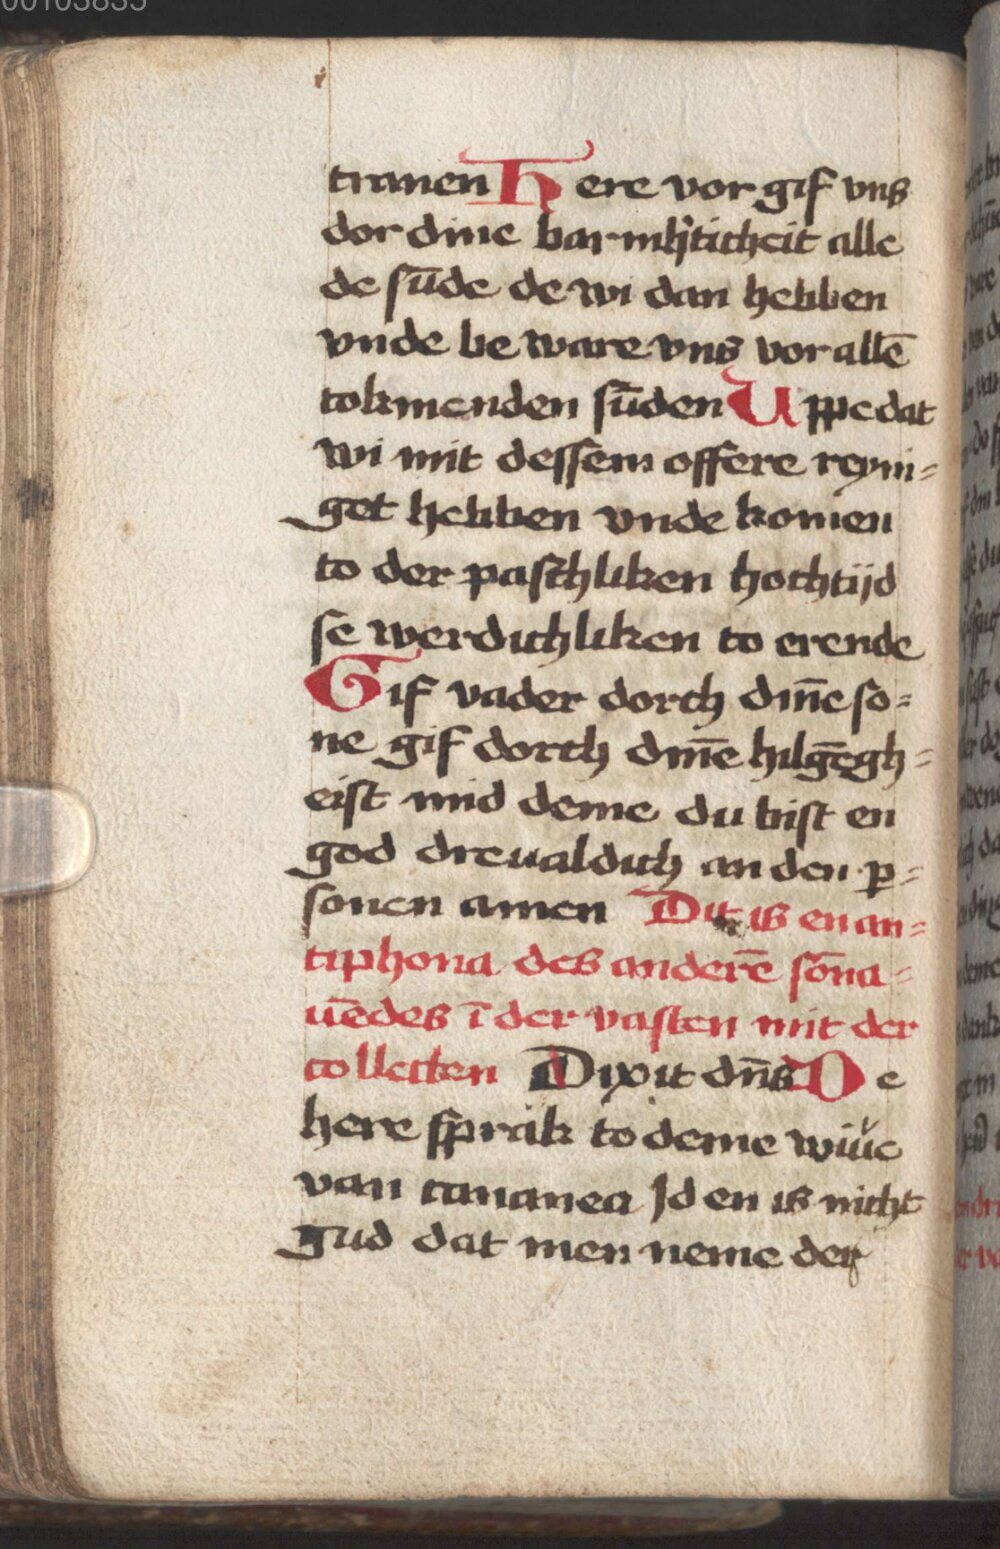 00103835
tranen Here vor gif vns
dor dine barmh'ticheit alle
de sūde de wi dan hebben
vnde be ware vns vor allē
tokmenden sūden Uppe dat
wi mit dessem offere reyni=
get hebben vnde komen
to der paschliken hochtijd
se werdichliken to erende
Gif vader dorch din̄e so=
ne gif dorch din̄e hilgēgh=
eist mid deme du bist en
god dreualdich an den p̲=
sonen amen Dit is en an=
tiphona des anderē sōna=
uēdes ī der vasten mit der
collecten Dixit dn̄s De
here sprak to deme wiue
van cananea Id en is nicht
gud dat men neme der